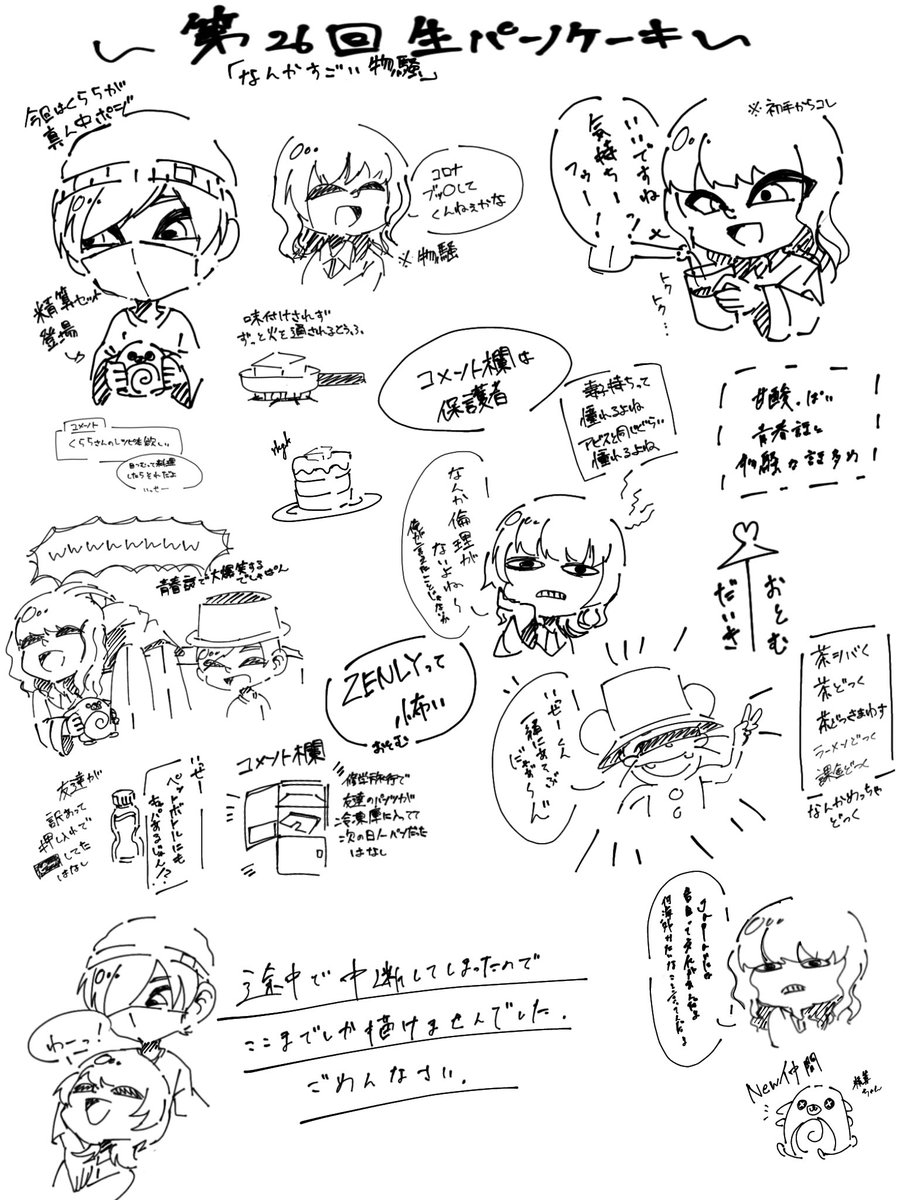 〜第26回生パンケーキ〜
「なんかすごい物騒」
今回はくららが
真ん中ポジ
コロナ
ブッ〇して
くんねぇかな
※物騒
※初手からコレ
いいですね
気持ちーっ!
フゥー!
トクトク…
精算セット
登場
味付けされず
ずっと火を通されるとうふ
コメント欄は
保護者
妻子持ちって
憧れるよね
アビスと同じぐらい
憧れるよね
甘酸っぱい
青春話と
物騒な話多め
コメント
くららさんのレシピ本欲しい
目つむって料理
したらとれたよ
いっせー
なんか倫理が
ないよね〜
wwwwwwww
青春話で大爆笑する
でしゃぱん
おとむ
だいき
ZENLYって
怖い
おとむ
いっせーくん
一緒にあそぶ
にゃあ〜ん
茶シバく
茶どつく
茶どつきまわす
ラーメンどつく
課金どつく
なんかめっちゃ
どつく
友達が
訳あって
押し入れで
してた
はなし
いっせー
ペットボトルにも
なるじゃん!?
コメント欄
修学旅行で
友達のパンツが
冷凍庫に入ってて
次の日ノーパンだった
はなし
わーっ!
途中で中断してしまったので
ここまでしか描けませんでした.
ごめんなさい.
New仲間